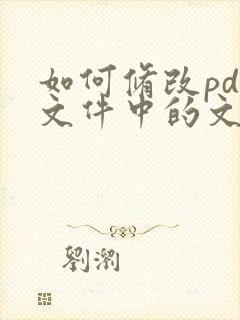 如何修改pd
文件中的文
劉瀏